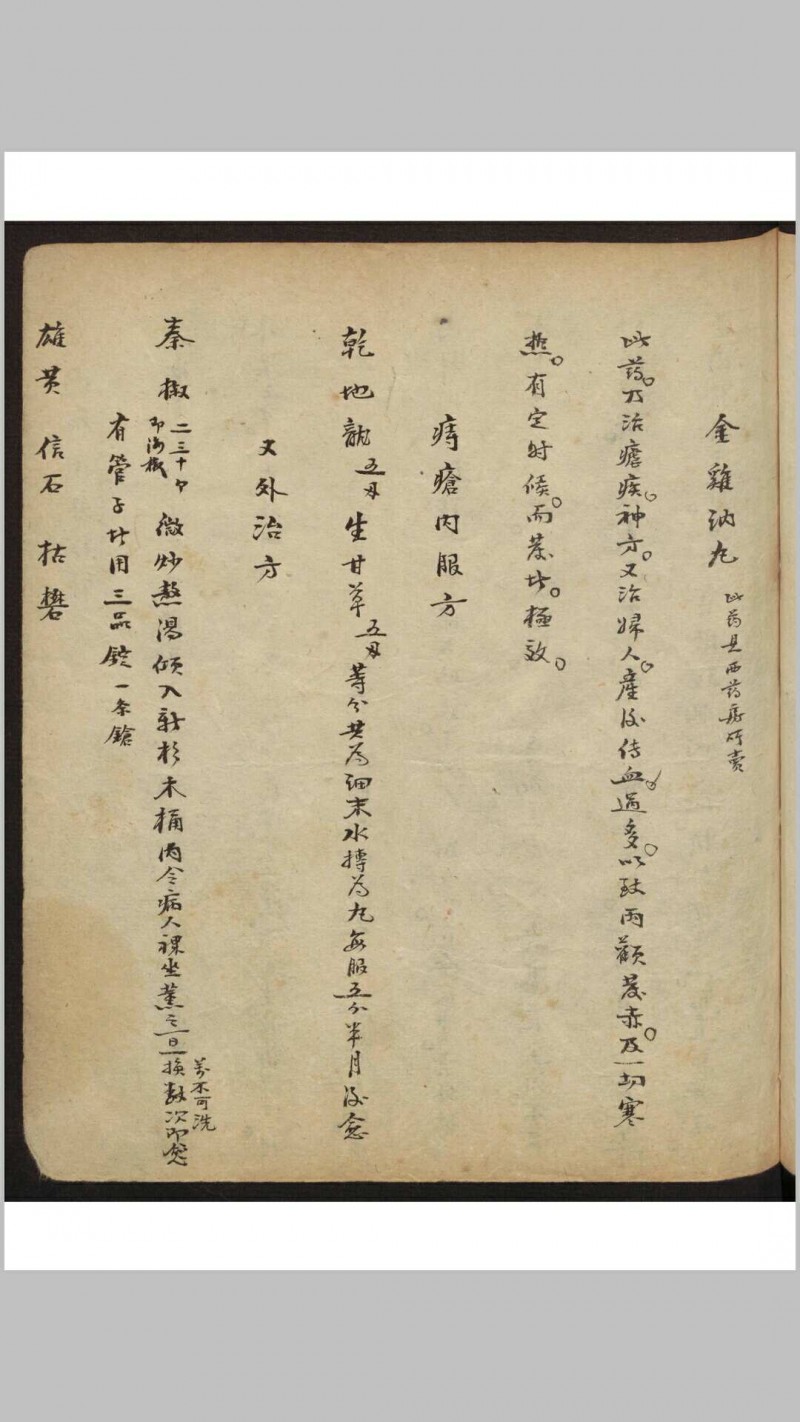 金雞纳丸 此药是西药房所賣
此药。乃治瘧疾。神方。又治婦人。産後傷血。過多。以致兩顴发赤。及一切寒
热。有定时候。而发者。極效。
痔瘡内服方
乾地龍 五錢 生甘草 五錢 等分共為细末水摶為丸每服五分半月後愈
又外治方
秦椒 二三十个 即海椒 微炒熬湯傾入新杉木桶内令病人裸坐薰之一日换数次即愈 萬不可洗
有管子者用三品錠一条鎗
雄黄 信石 枯礬